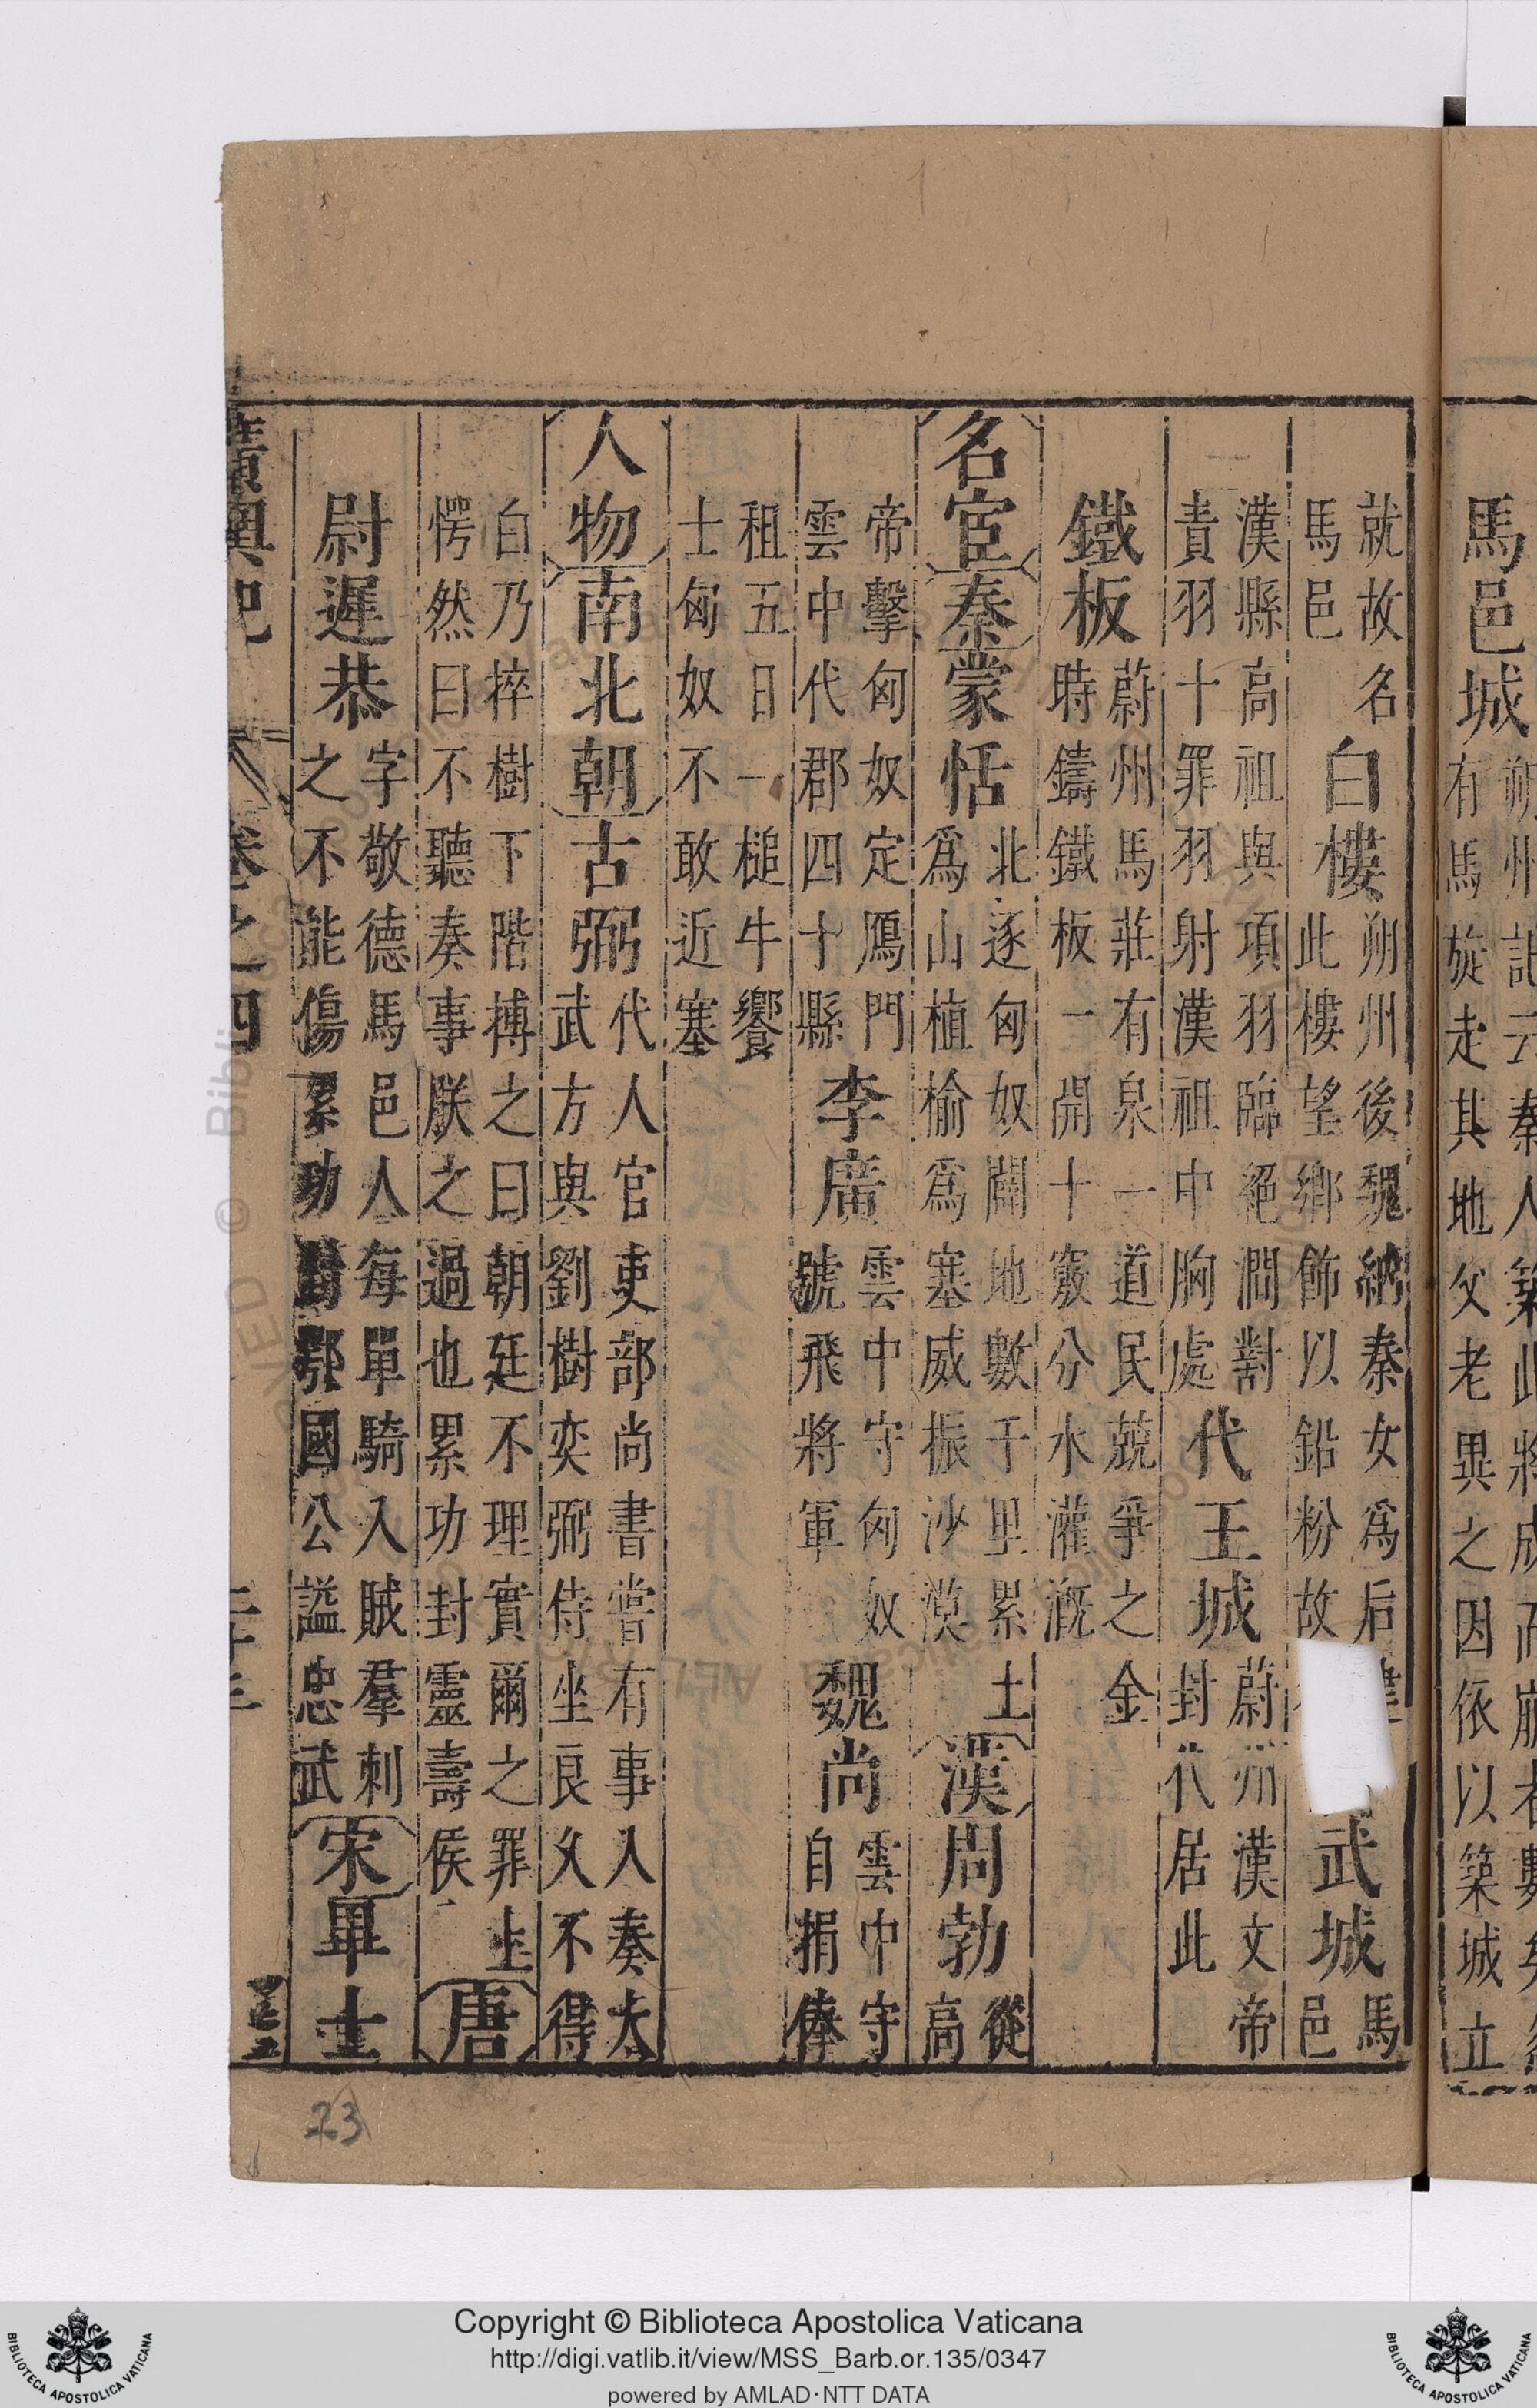 馬邑城
有馬旋走其地父老異之因依以築城立
就故名
馬邑
白樓
朔州後魏納秦女爲后
此樓望鄉飾以鉛粉故
武城
馬
邑
漢縣高祖與項羽臨絕澗對
責羽十罪羽射漢祖中胸處
代王城
蔚州漢文帝
封代居此
鐵板
蔚州馬莊有泉一道民兢爭之金
時鑄鐵板一開十竅分水灌溉
名宦
秦
蒙恬
北逐匈奴闢地數千里累土
爲山植榆爲塞威振沙漠
漢
周勃
從
高
帝擊匈奴定鴈門
雲中代郡四十縣
李廣
雲中守匈奴
號飛將軍
魏尚
雲中守
自捐俸
租五日一槌牛饗
士匈奴不敢近塞
人物
南北朝
古弼
代人官吏部尚書嘗有事入奏太
武方與劉樹奕弼侍坐良久不得
白乃捽樹下階搏之曰朝廷不理實爾之罪上
愕然曰不聽奏事朕之過也累功封靈壽侯
唐
尉遲恭
字敬德馬邑人每單騎入賊羣刺
之不能傷累功封鄂國公謚忠武
宋
畢士
廣輿記
卷之四
二十三
23
Copyright © Biblioteca Apostolica Vaticana
http://digi.vatlib.it/view/MSS_Barb.or.135/0347
powered by AMLAD·NTT DATA
BIBLIOTECA APOSTOLICA VATICANA
BIBLIOTECA APOSTOLICA VATICANA